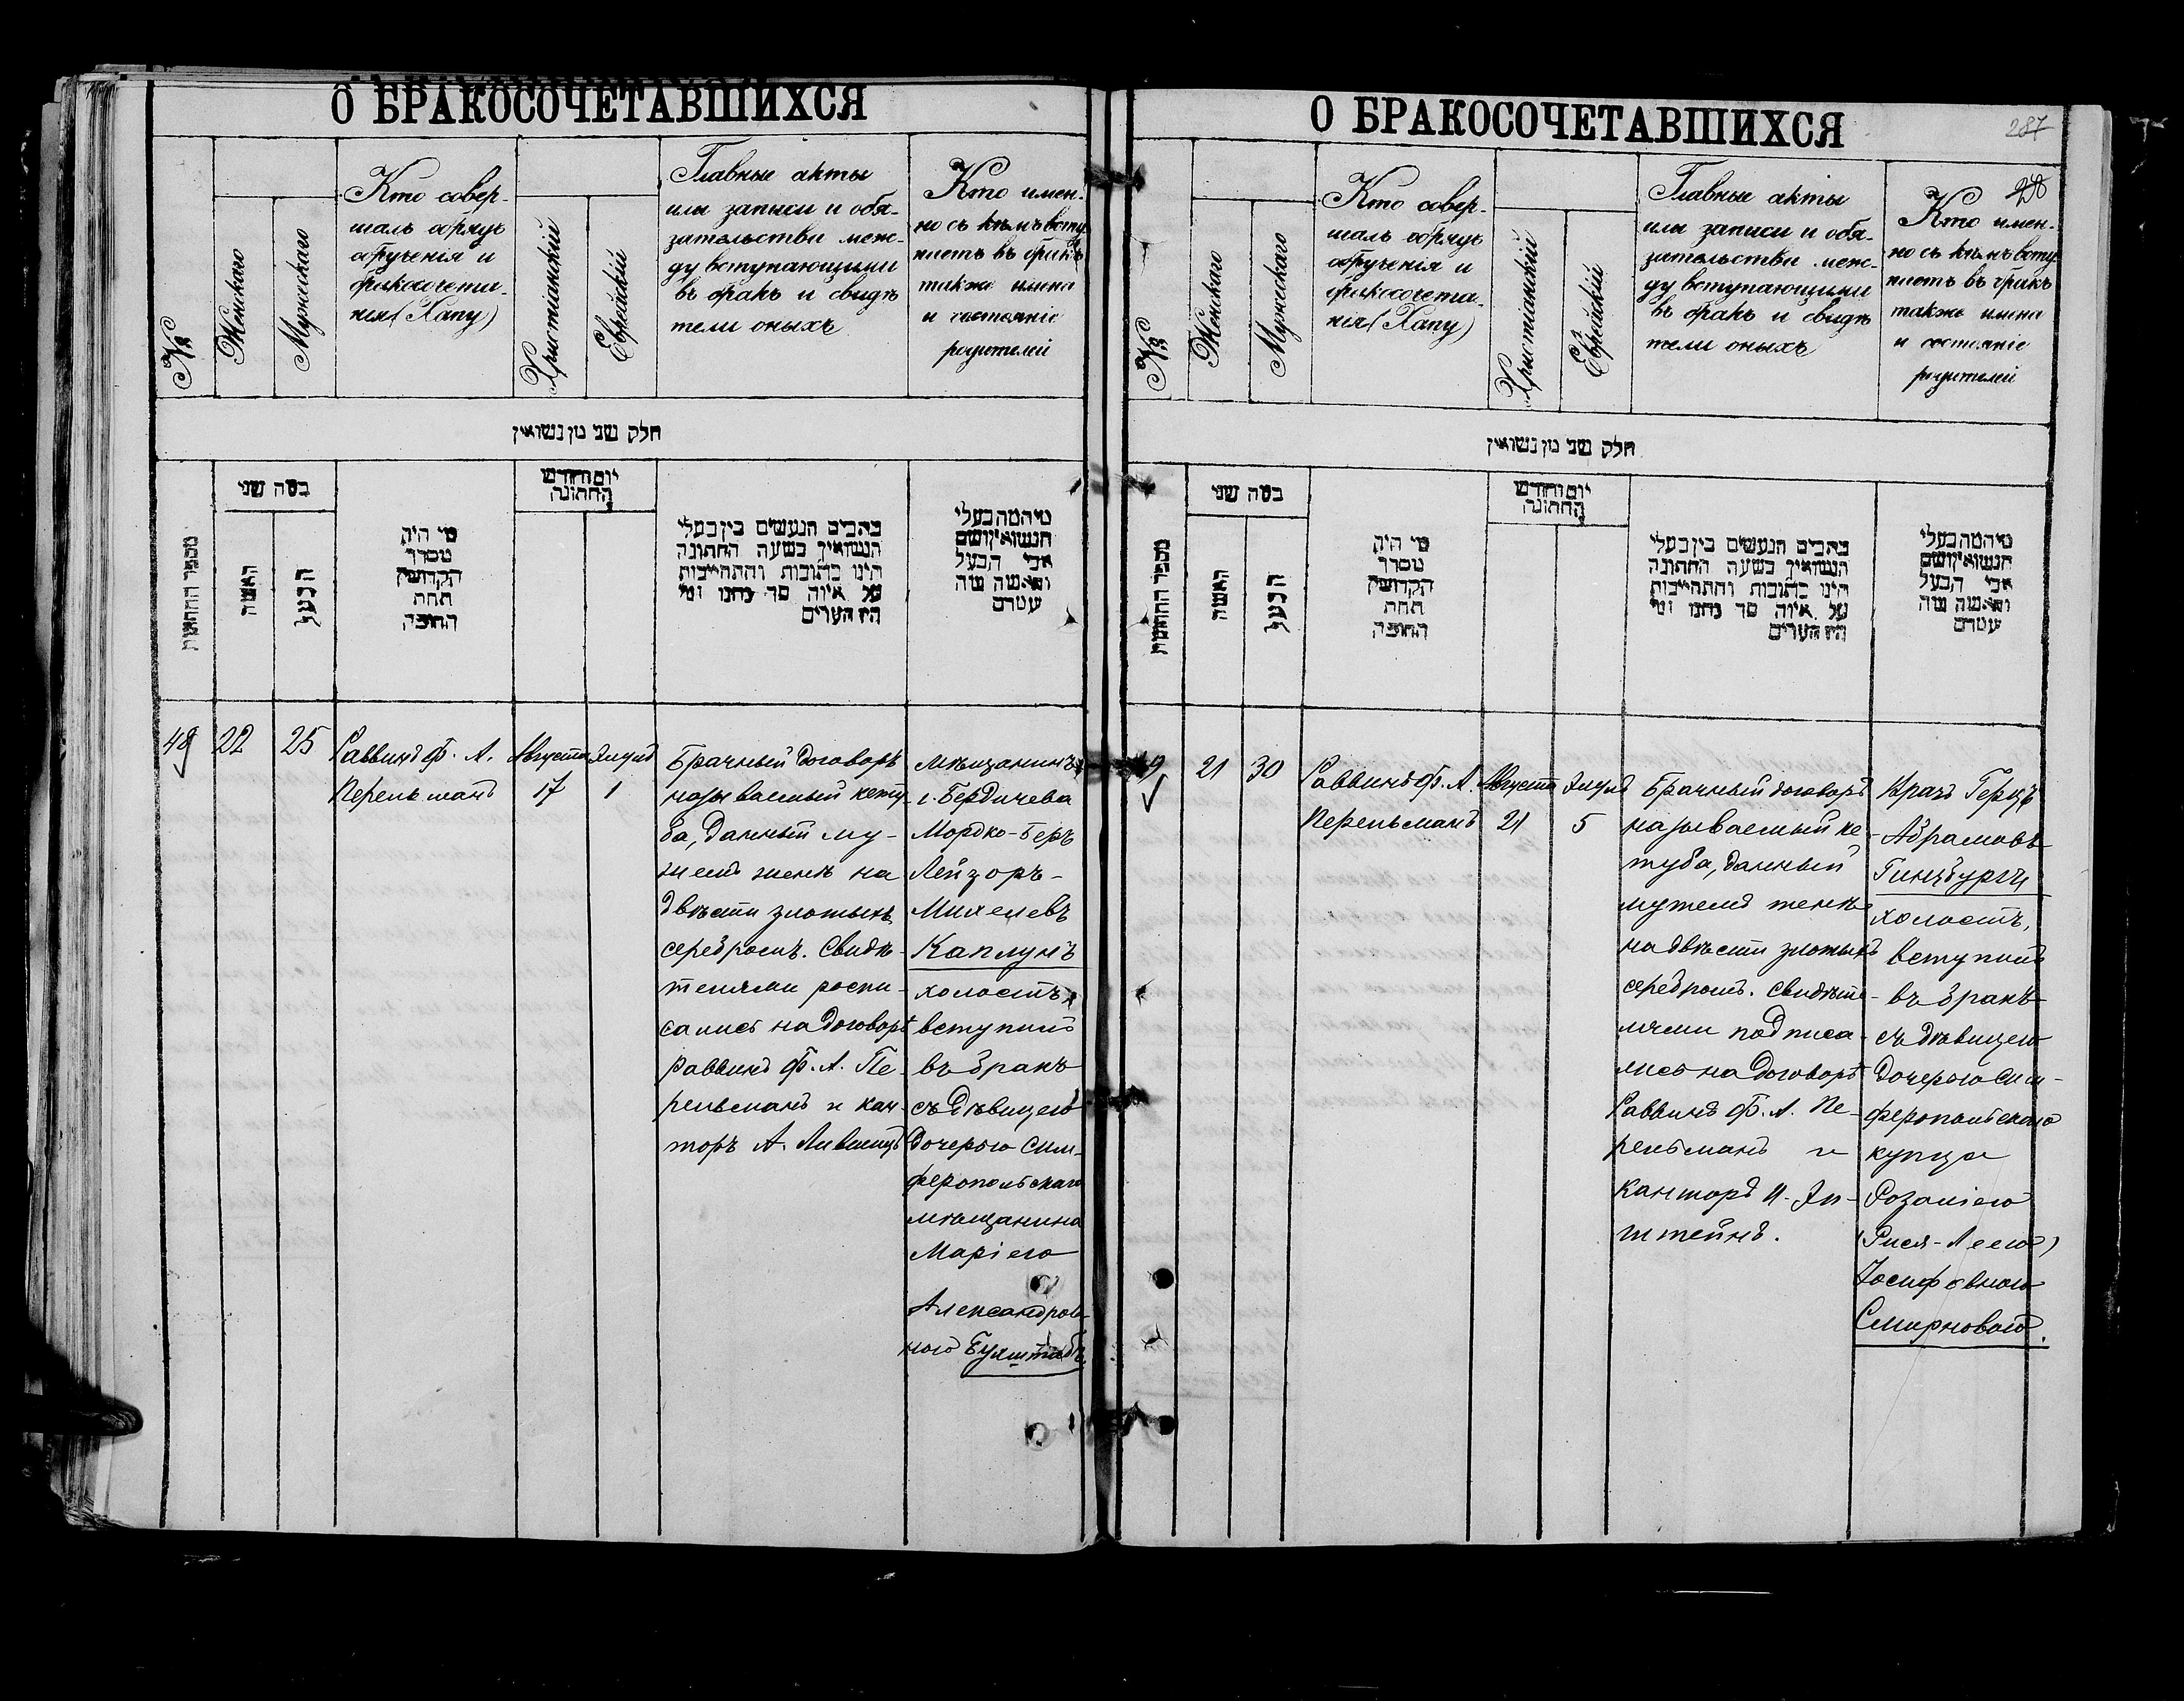 О БРАКОСОЧЕТАВШИХСЯ
№
Женскаго
Мужескаго
Кто совер-
шалъ обрядъ
обрученія и
бракосочета-
нія (Хапу)
Христіанскій
Еврейскій
Главные акты
или записи и обя-
зательства меж-
ду вступающими
въ бракъ и свидѣ
тели оныхъ
Кто имен-
но съ кѣмъ всту
паетъ въ бракъ
также имена
и состояніе
родителей
חלק שני מן נשואין
מספר החתונות
כמה שני
האשה
הבעל
מי היה
מסדר
הקדושין
תחת
החופה
יום וחודש
החתונה
כתבים הנעשים בין בעלי
הנשואין בשעה החתונה
היינו כתובות והתחייבות
על איזה סך נתנו ומי
היו הערים
מי המה בעלי
הנשואין ושם
אבי הבעל
והאשה ומה
עטרם
48
22
25
Раввинъ Ф. А.
Перельманъ
Августа
17
Элулъ
1
Брачный договоръ
называемый кету
ба, данный му-
жемъ женѣ на
двѣсти злотыхъ
серебромъ. Свидѣ-
телями распи-
сались на договорѣ
раввинъ Ф. А. Пе-
рельманъ и кан-
торъ А. Лившицъ
мѣщанинъ
г. Бердичева
Мордко-Беръ
Лейзоръ-
Михелевъ
Каплунъ
холостъ,
вступилъ
въ бракъ
съ дѣвицею
дочерью Сим-
феропольскаго
мѣщанина
Маріею
Александров-
ною Бухштабъ.
О БРАКОСОЧЕТАВШИХСЯ
287
№
Женскаго
Мужескаго
Кто совер-
шалъ обрядъ
обрученія и
бракосочета-
нія (Хапу)
Христіанскій
Еврейскій
Главные акты
или записи и обя-
зательства меж-
ду вступающими
въ бракъ и свидѣ
тели оныхъ
Кто имен-
но съ кѣмъ всту
паетъ въ бракъ
также имена
и состояніе
родителей
חלק שני מן נשואין
מספר החתונות
כמה שני
האשה
הבעל
מי היה
מסדר
הקדושין
תחת
החופה
יום וחודש
החתונה
כתבים הנעשים בין בעלי
הנשואין בשעה החתונה
היינו כתובות והתחייבות
על איזה סך נתנו ומי
היו הערים
מי המה בעלי
הנשואין ושם
אבי הבעל
והאשה ומה
עטרם
21
30
Раввинъ Ф. А.
Перельманъ
Августа
21
Элулъ
5
Брачный договоръ
называемый ке-
туба, данный
мужемъ женѣ
на двѣсти злотыхъ
серебромъ. Свидѣте-
лями подписа-
лись на договорѣ
Раввинъ Ф. А. Пе-
рельманъ и
канторъ И. Эп-
штейнъ.
Врачъ Герцъ
Абрамовъ
Гинцбургъ,
холостъ,
вступилъ
въ бракъ
съ дѣвицею
дочерью Сим-
феропольскаго
купца
Розаліею
(Рися-Леею)
Іосифовною
Смирновою.